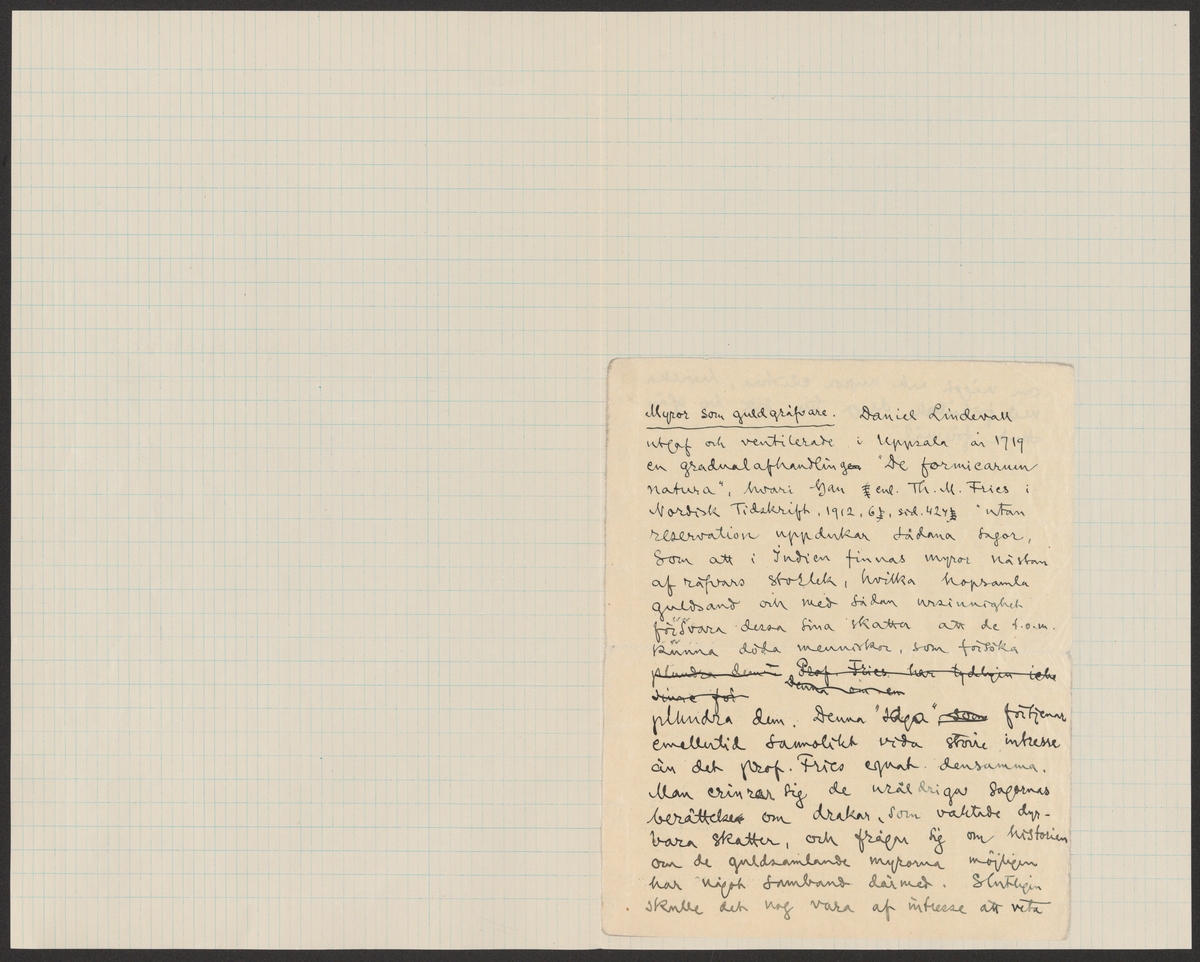 Myror som guldgräfvare. Daniel Lindevall
utgaf och ventilerade i Uppsala år 1719
en gradualafhandling "De formicarum
natura", hvari han enl. Th. M. Fries i
Nordisk Tidskrift, 1912, sid. 424 "utan
reservation uppdukar sådana sagor,
som att i Indien finnas myror nästan
af räfvars storlek, hvilka hopsamla
guldsand och med sådan ursinnighet
försvara dessa sina skatter att de t.o.m.
kunna döda menniskor, som försöka
plundra dem" Prof. Fries har tydligen icke
Denna
plundra dem. Denna "saga", som förtjenar
emellertid sannolikt vida större intresse
än det prof. Fries egnat densamma.
Man erinrar sig de uråldriga sagornas
berättelser om drakar, som vaktade dyr-
bara skatter, och frågar sig om historien
om de guldsamlande myrorna möjligen
har något samband därmed. Slutligen
skulle det nog vara af intresse att veta